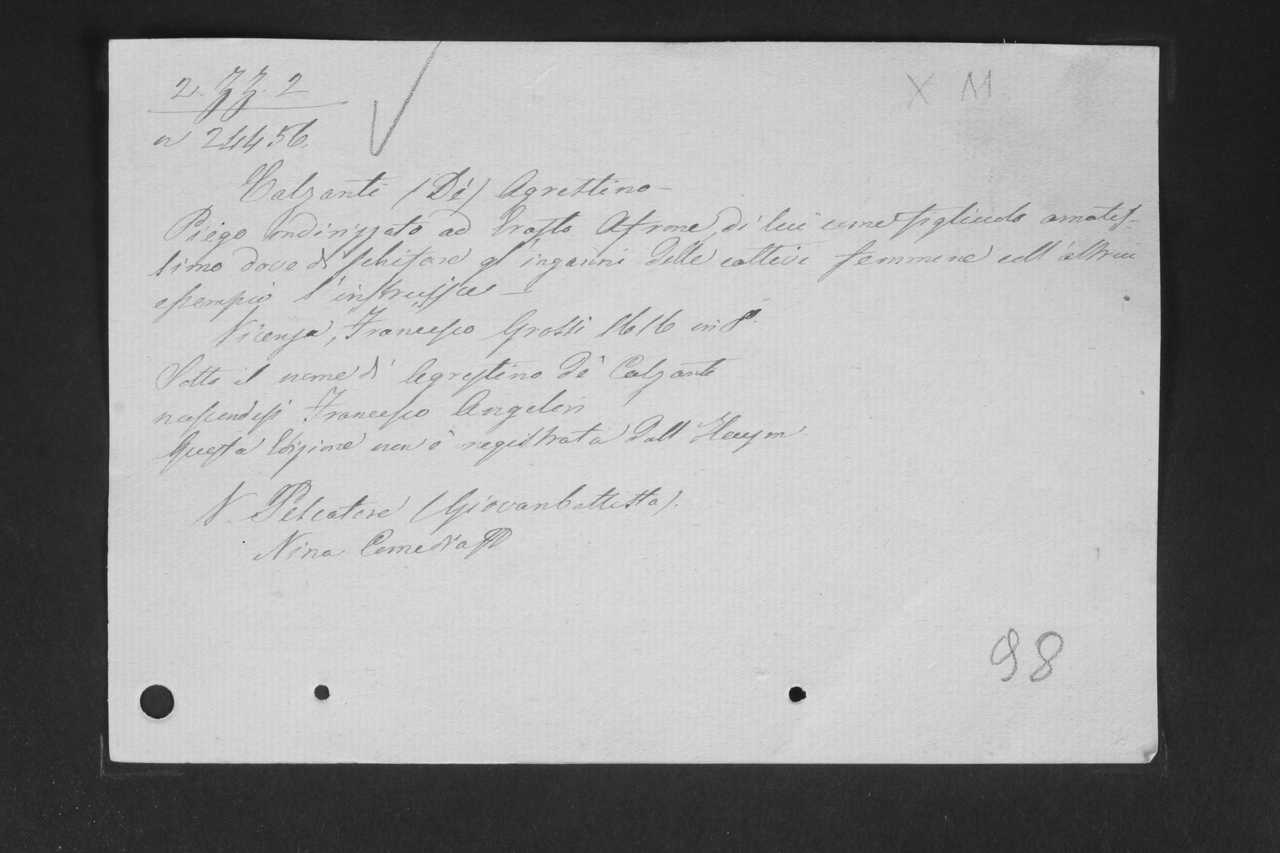 2. ZZ. 2
X M
n 24456.
Calzanti (De) Agrestino -
Piego indirizzato ad Erasto Afrone, di lui come figliuolo amatis-
simo dove di schifare gl'inganni delle cattive femmene coll'altrui
esempio l'instruisce -
Vicenza, Francesco Grossi 1616 in 8°.
Sotto il nome di Agrestino de Calzanti
nascondesi Francesco Angeleri
Questa Edizione non è registrata dall'Haym
V. Pescatore (Giovanbattista).
Nina Comedia
98